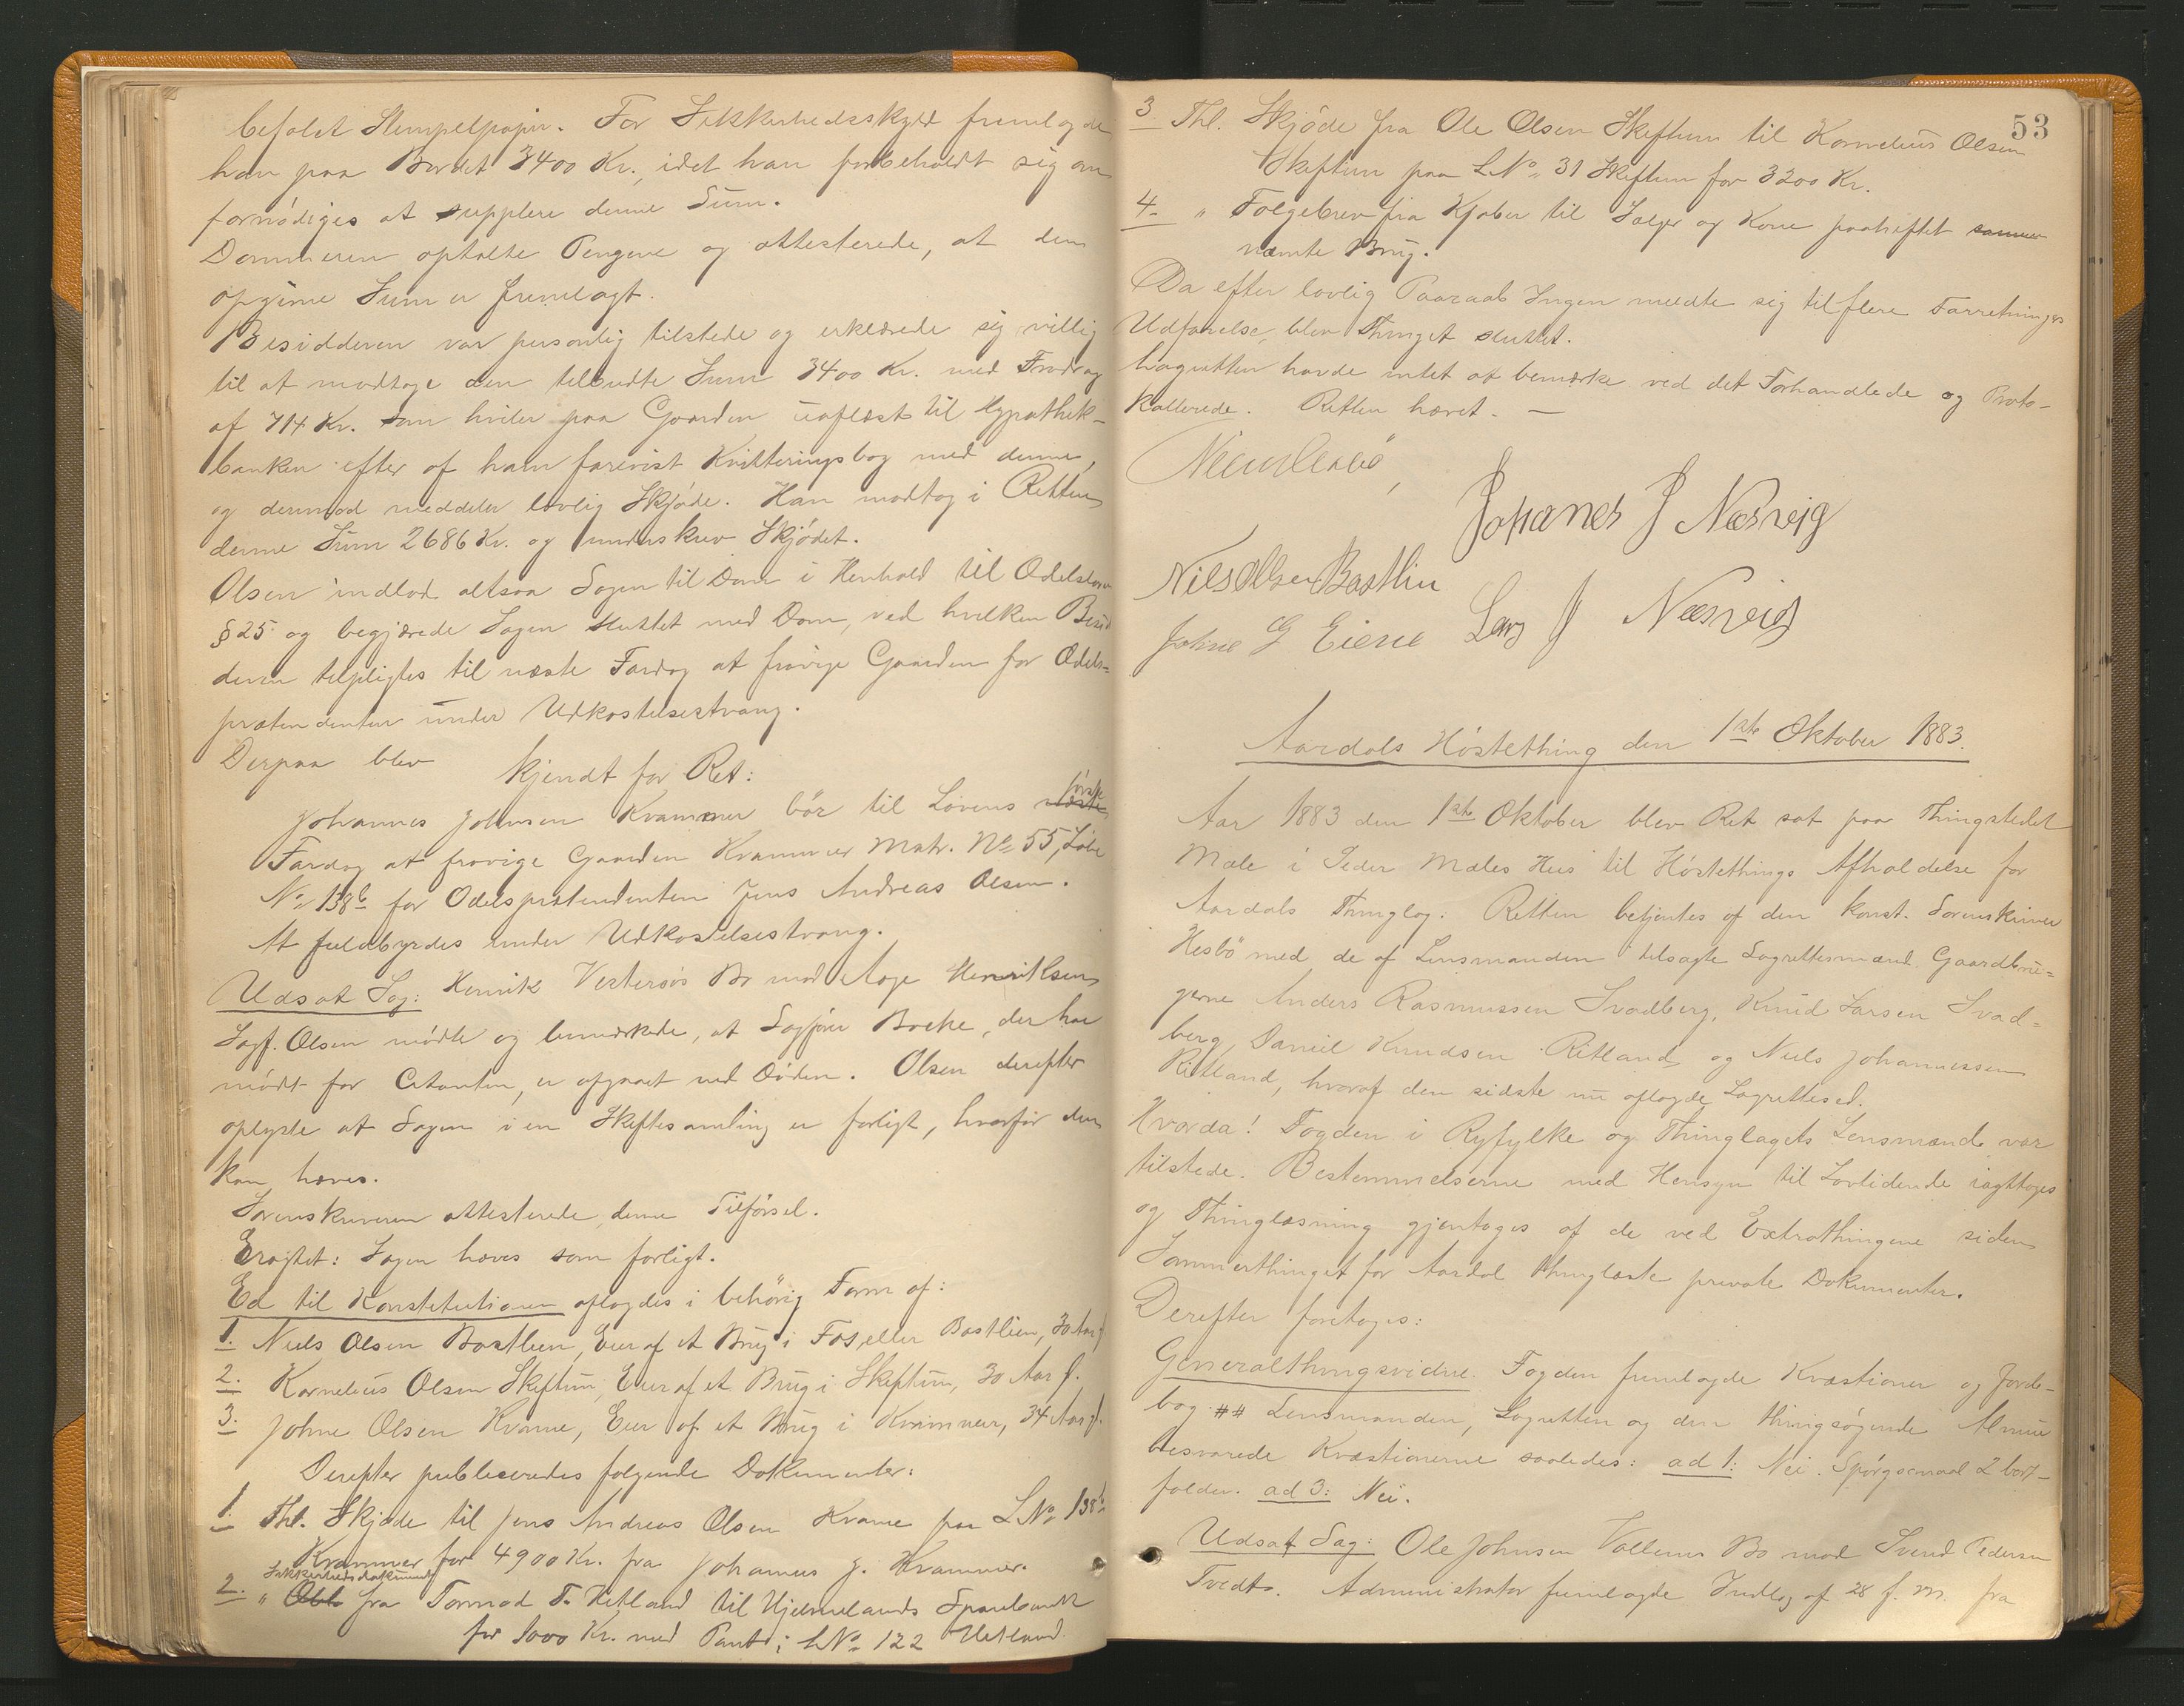 befalet Stempelpapir. For Sikkerhedsskyld fremlagde
han paa Bordet 3400 Kr., idet han forbeholdt sig om
fornødiges at supplere denne Sum.
Dommeren optalte Pengene og attesterede, at den
opgivne Sum er fremlagt.
Besidderen var personlig tilstede og erklærede sig villig
til at modtage den tilbudte Sum 3400 Kr. med Fradrag
af 714 Kr. som hviler paa Gaarden uaflæst til Hypothek-
banken efter af ham forevist Kvitteringsbog med denne,
og derimod meddeler lovlig Skjøde. Han modtog i Retten
denne Sum 2686 Kr. og underskrev Skjødet.
Olsen indlod altsaa Sagen til Dom i Henhold til Odelsloven
§ 25 og begjærede Sagen sluttet med Dom, ved hvilken Besid
deren tilpligtes til næste Fardag at fravige Gaarden for Odels-
prætendenten under Udkastelsestvang.
Derpaa blev kjendt for Ret:
Johannes Johnsen Kvammer bør til Lovens næste første
Fardag at fravige Gaarden Kvammer Matr. No 55, Løbe
No 138b for Odelsprætendenten Jens Andreas Olsen.
At fuldbyrdes under Udkastelsestvang.
Udsat Sag: Henrik Vestersøs Bo mod Aage Henriksen
Sagf. Olsen mødte og bemærkede, at Sagfører Bocke, der har
mødt for Citanten, er afgaaet ved Døden. Olsen derefter
oplyste at Sagen i en Skiftesamling er forligt, hvorfor den
kan hæves.
Sorenskriveren attesterede denne Tilførsel.
Eragtet: Sagen hæves som forligt.
Ed til Konstitutionen aflagdes i behørig Form af:
1. Niels Olsen Bastlien, Eier af et Brug i Fos eller Bastlien, 30 Aar g.
2. Kornelius Olsen Skiftun, Eier af et Brug i Skiftun, 30 Aar g.
3. Johne Olsen Kvame, Eier af et Brug i Kvammer, 34 Aar g.
Derefter publiceredes følgende Dokumenter:
1. Thl. Skjøde til Jens Andreas Olsen Kvame paa LNo 138b
Kvammer for 4900 Kr. fra Johannes J. Kvammer.
2. " Obl. Sikkerhedsdokument fra Tormod T. Hetland til Hjelmelands Sparebank
for 1000 Kr. med Pant i LNo 122 Hetland.
53
3 Thl. Skjøde fra Ole Olsen Skiftun til Kornelius Olsen
Skiftun paa LNo 31 Skiftun for 3200 Kr.
4. " Følgebrev fra Kjøber til Sælger og Kone paaheftet samme
nævnte Brug.
Da efter lovlig Paaraab Ingen meldte sig til flere Forretningers
Udførelse, blev Thinget sluttet.
Lagretten havde intet at bemærke ved det Forhandlede og Proto-
kollerede. Retten hævet. —
Johanes J Næsveig
Niels Olsen Bastlien
Johne G Eiene Lars J Næsveig
Aardals Høstething den 1ste Oktober 1883.
Aar 1883 den 1ste Oktober blev Ret sat paa Thingstedet
Mæle i Peder Mæles Hus til Høstethings Afholdelse for
Aardals Thinglag. Retten betjentes af den konst. Sorenskriver
Hesbø med de af Lensmanden tilsagte Lagrettesmænd Gaardbru-
gerne Anders Rasmussen Svadberg, Knud Larsen Svad-
berg, Daniel Knudsen Ritland og Niels Johannessen
Ritland, hvoraf den sidste nu aflagde Lagrettesed.
Hvorda! Fogden i Ryfylke og Thinglagets Lensmænd var
tilstede. Bestemmelserne med Hensyn til Lovtidende iagttoges
og Thinglæsning gjentoges af de ved Extrathingene siden
Sommerthinget for Aardal thinglæste private Dokumenter.
Derefter foretoges:
Generalthingsvidne. Fogden fremlagde Kvæstioner og Jorde-
bog ## Lensmanden, Lagretten og den thingsøgende Almue
besvarede Kvæstionerne saaledes: ad 1: Nei. Spørgsmaal 2 bort-
falder. ad 3: Nei.
Udsat Sag: Ole Johnsen Vallenes Bo mod Svend Pedersen
Tvedt. Administrator fremlagde Indlæg af 28 f. M. fra